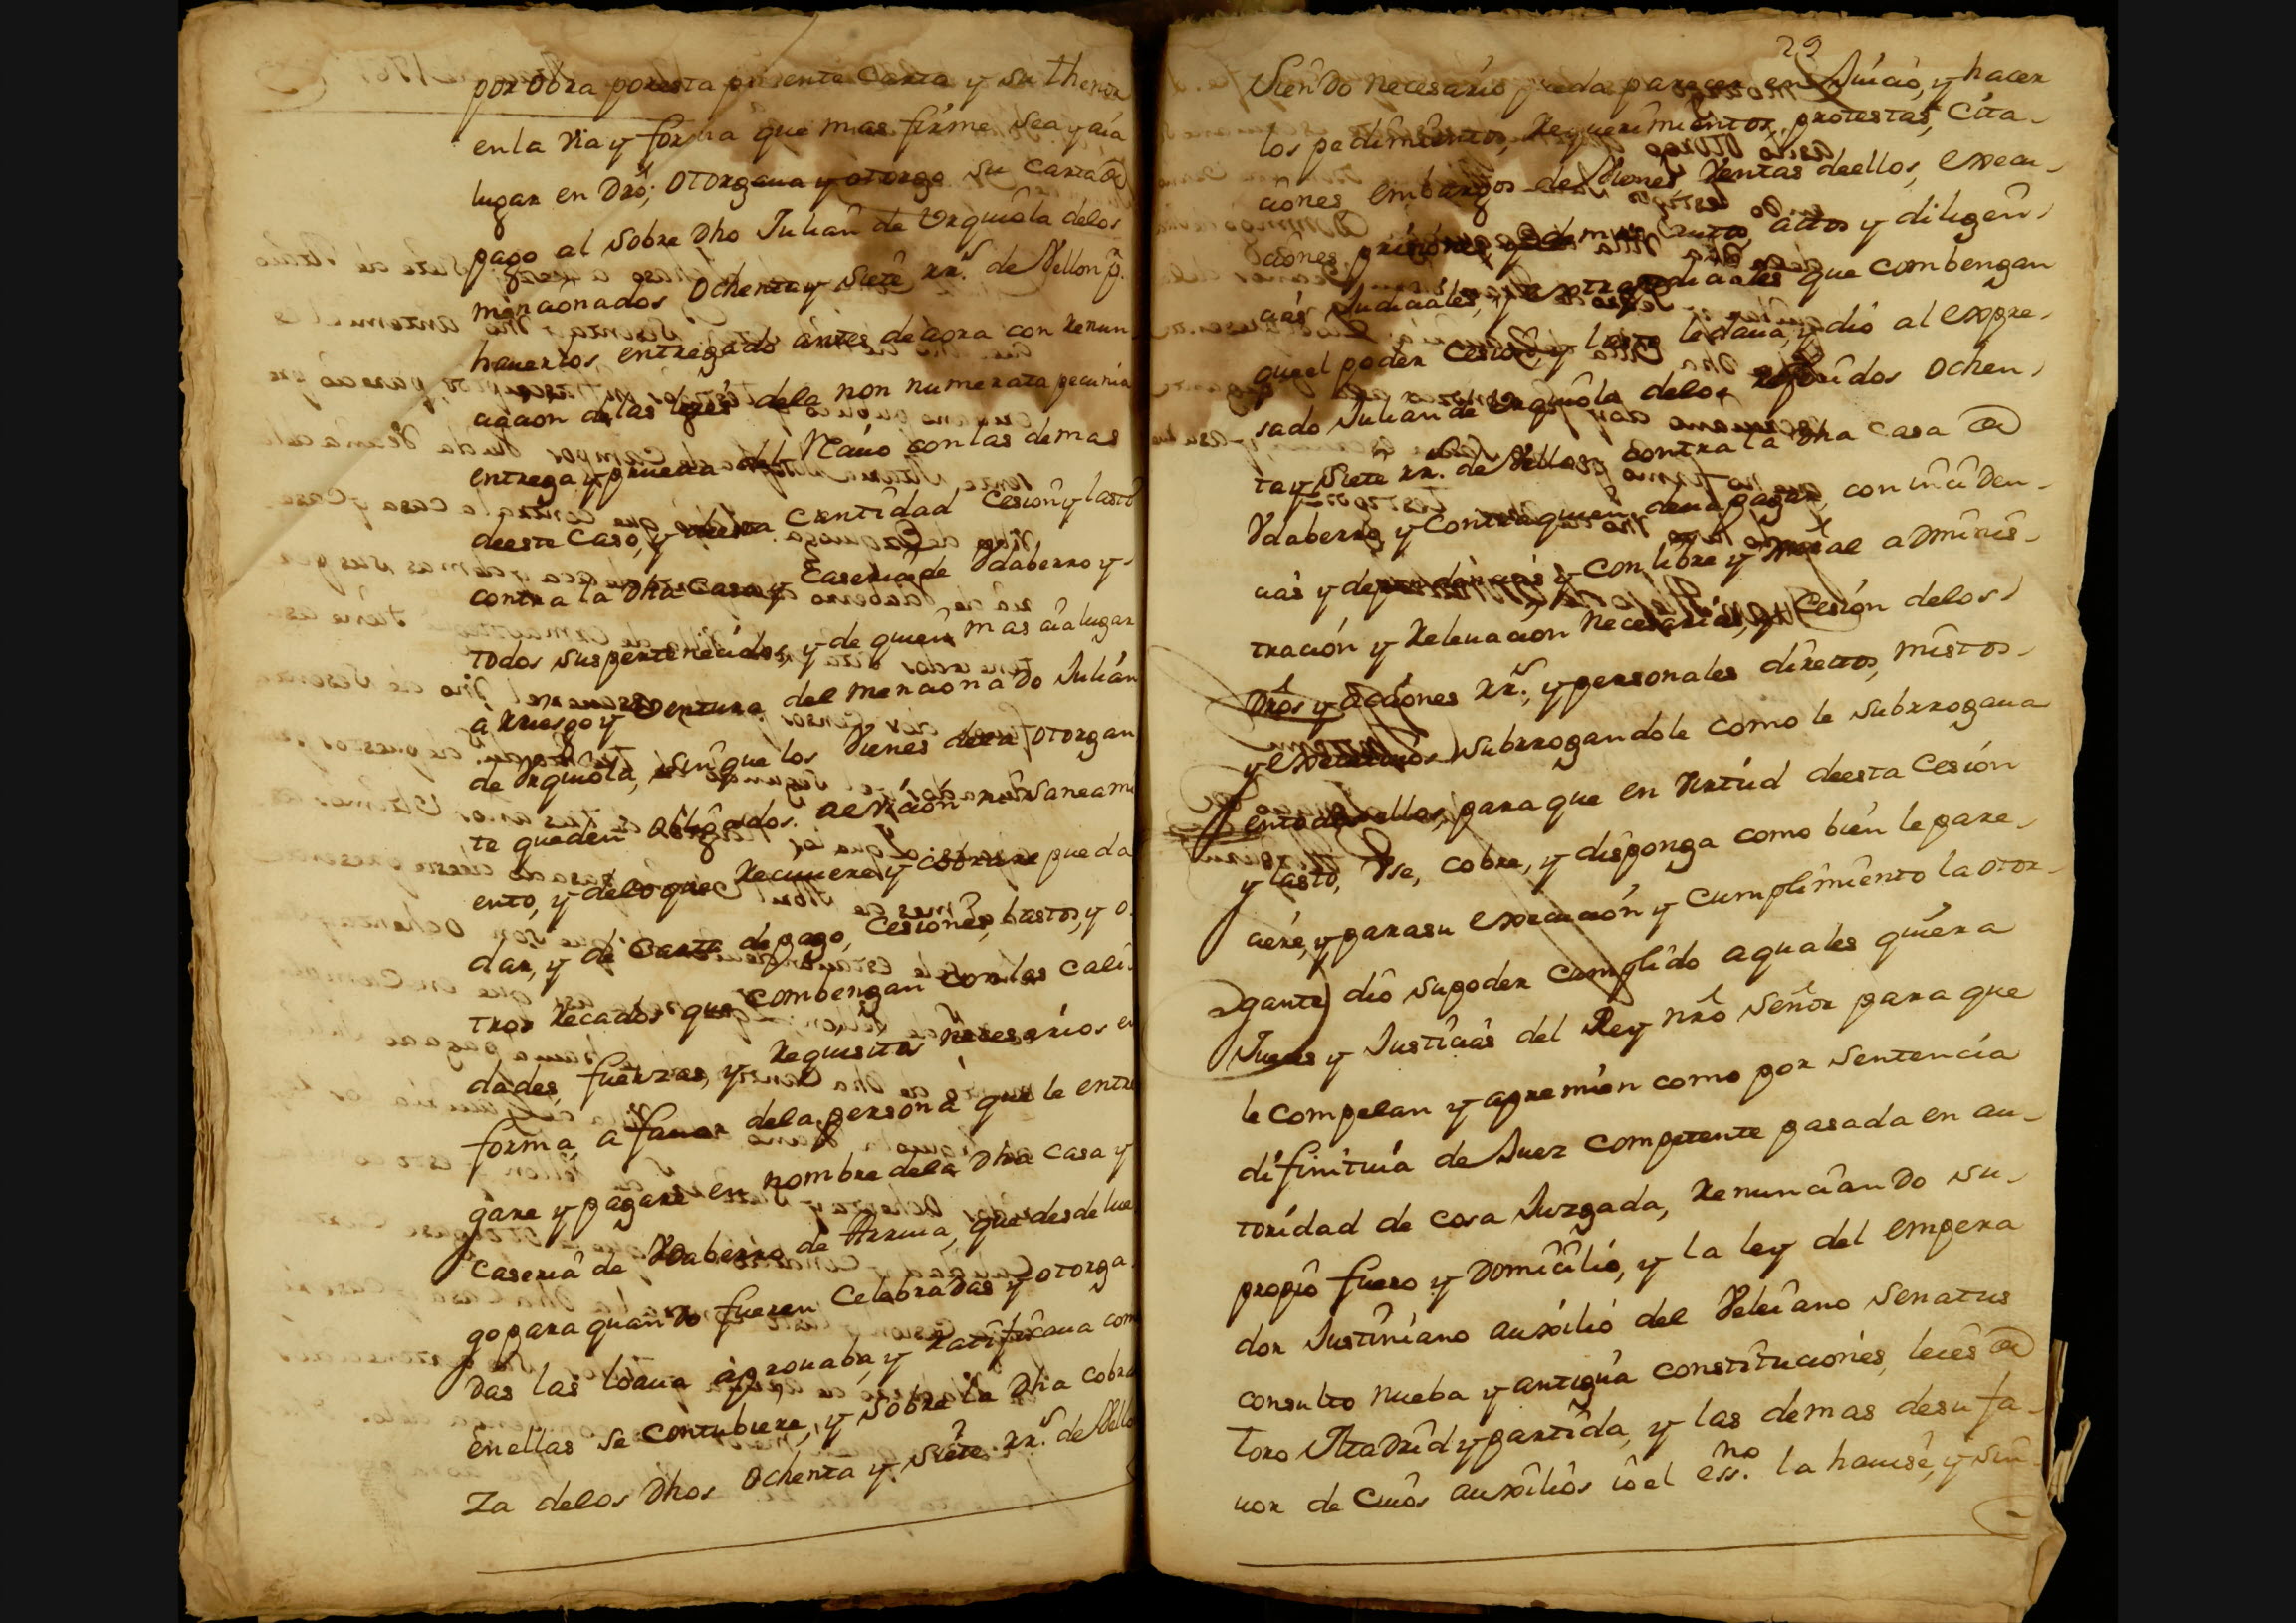 por obra por esta presente Carta y su thenor
en la via y forma que mas firme sea y aia
lugar en Dro; otorgaua y otorgo su carta de
pago al sobre Dho Julian de Urquiola delos
mencionados ochenta y siete rr.s de Vellon p.r
hauerlos entregado antes de aora con renun
ciacion de las leyes dela non numerata pecunia
entrega y prueua del reciuo con las demas
deeste caso, y de esta cantidad Cesion y lasto
contra la Dha Casa y Caseria de Ydaberro y
todos sus pertenecidos, y de quien mas aia lugar
a rriesgo y ventura del mencionado Julian
de Urquiola, sin que los Vienes dela otorgan
te queden obligados. a eviccion ni saneami
ento, y delo que recuuere y cobrare pueda
dar, y dé Carta de pago, Cesiones, lastos, y o
tros recados que combengan con las cali
dades, fuerzas, y requisitos necesarios en
forma, a fauor dela persona que le entre
gare y pagare en nombre dela Dha casa y
Caseria de Ydaberro de Arrua, que desde lue
go para quando fueren Celebradas y otorga
Das las loaua aprouaba, y ratificaua como
en ellas se contubiere, y sobre la Dha cobra
Za delos Dhos ochenta y siete rr.s de Vello
29
Siendo necesario pueda parecer en Juicio, y hacer
los pedimientos, requerimientos, protestas, cita
ciones embargos de Vienes Ventas deellos, execu
ciones, prisiones, y demas autos, actos y diligen
cias Judiciales, y extrajudiciales que combengan
que el poder Cesion, y lasto le daua, y dio al expre
sado Julian de Urquiola delos referidos ochen
ta y siete rr.s de Vellon contra la Dha casa de
Ydaberro y contra quien deua pagar, con inciden
cias y dependencias y con libre y gral adminis
tracion y releuacion necesarias, y Cesion delos
Dros y acciones rr.s y personales directos, mistos
y executiuos subrrogandole como le subrrogaua
en todos ellos, para que en virtud deesta Cesion
y lasto, Use, cobre, y disponga como bien le pare
ciere, y para su execucion y cumplimiento la otor
gante) dio su poder cumplido a quales quiera
Jueces y Justicias del Rey nro Señor para que
le compelan y apremien como por sentencia
difinitiua de Juez competente pasada en au
toridad de cosa Juzgada, renunciando su
propio fuero y Domicilio, y la ley del empera
dor Justiniano auxilio del Veleiano Senatus
consulto nueba y antigua constituciones, leies de
toro Madrid y partida, y las demas de su fa
uor de cuios auxilios io el ess.no la hauise, y sin